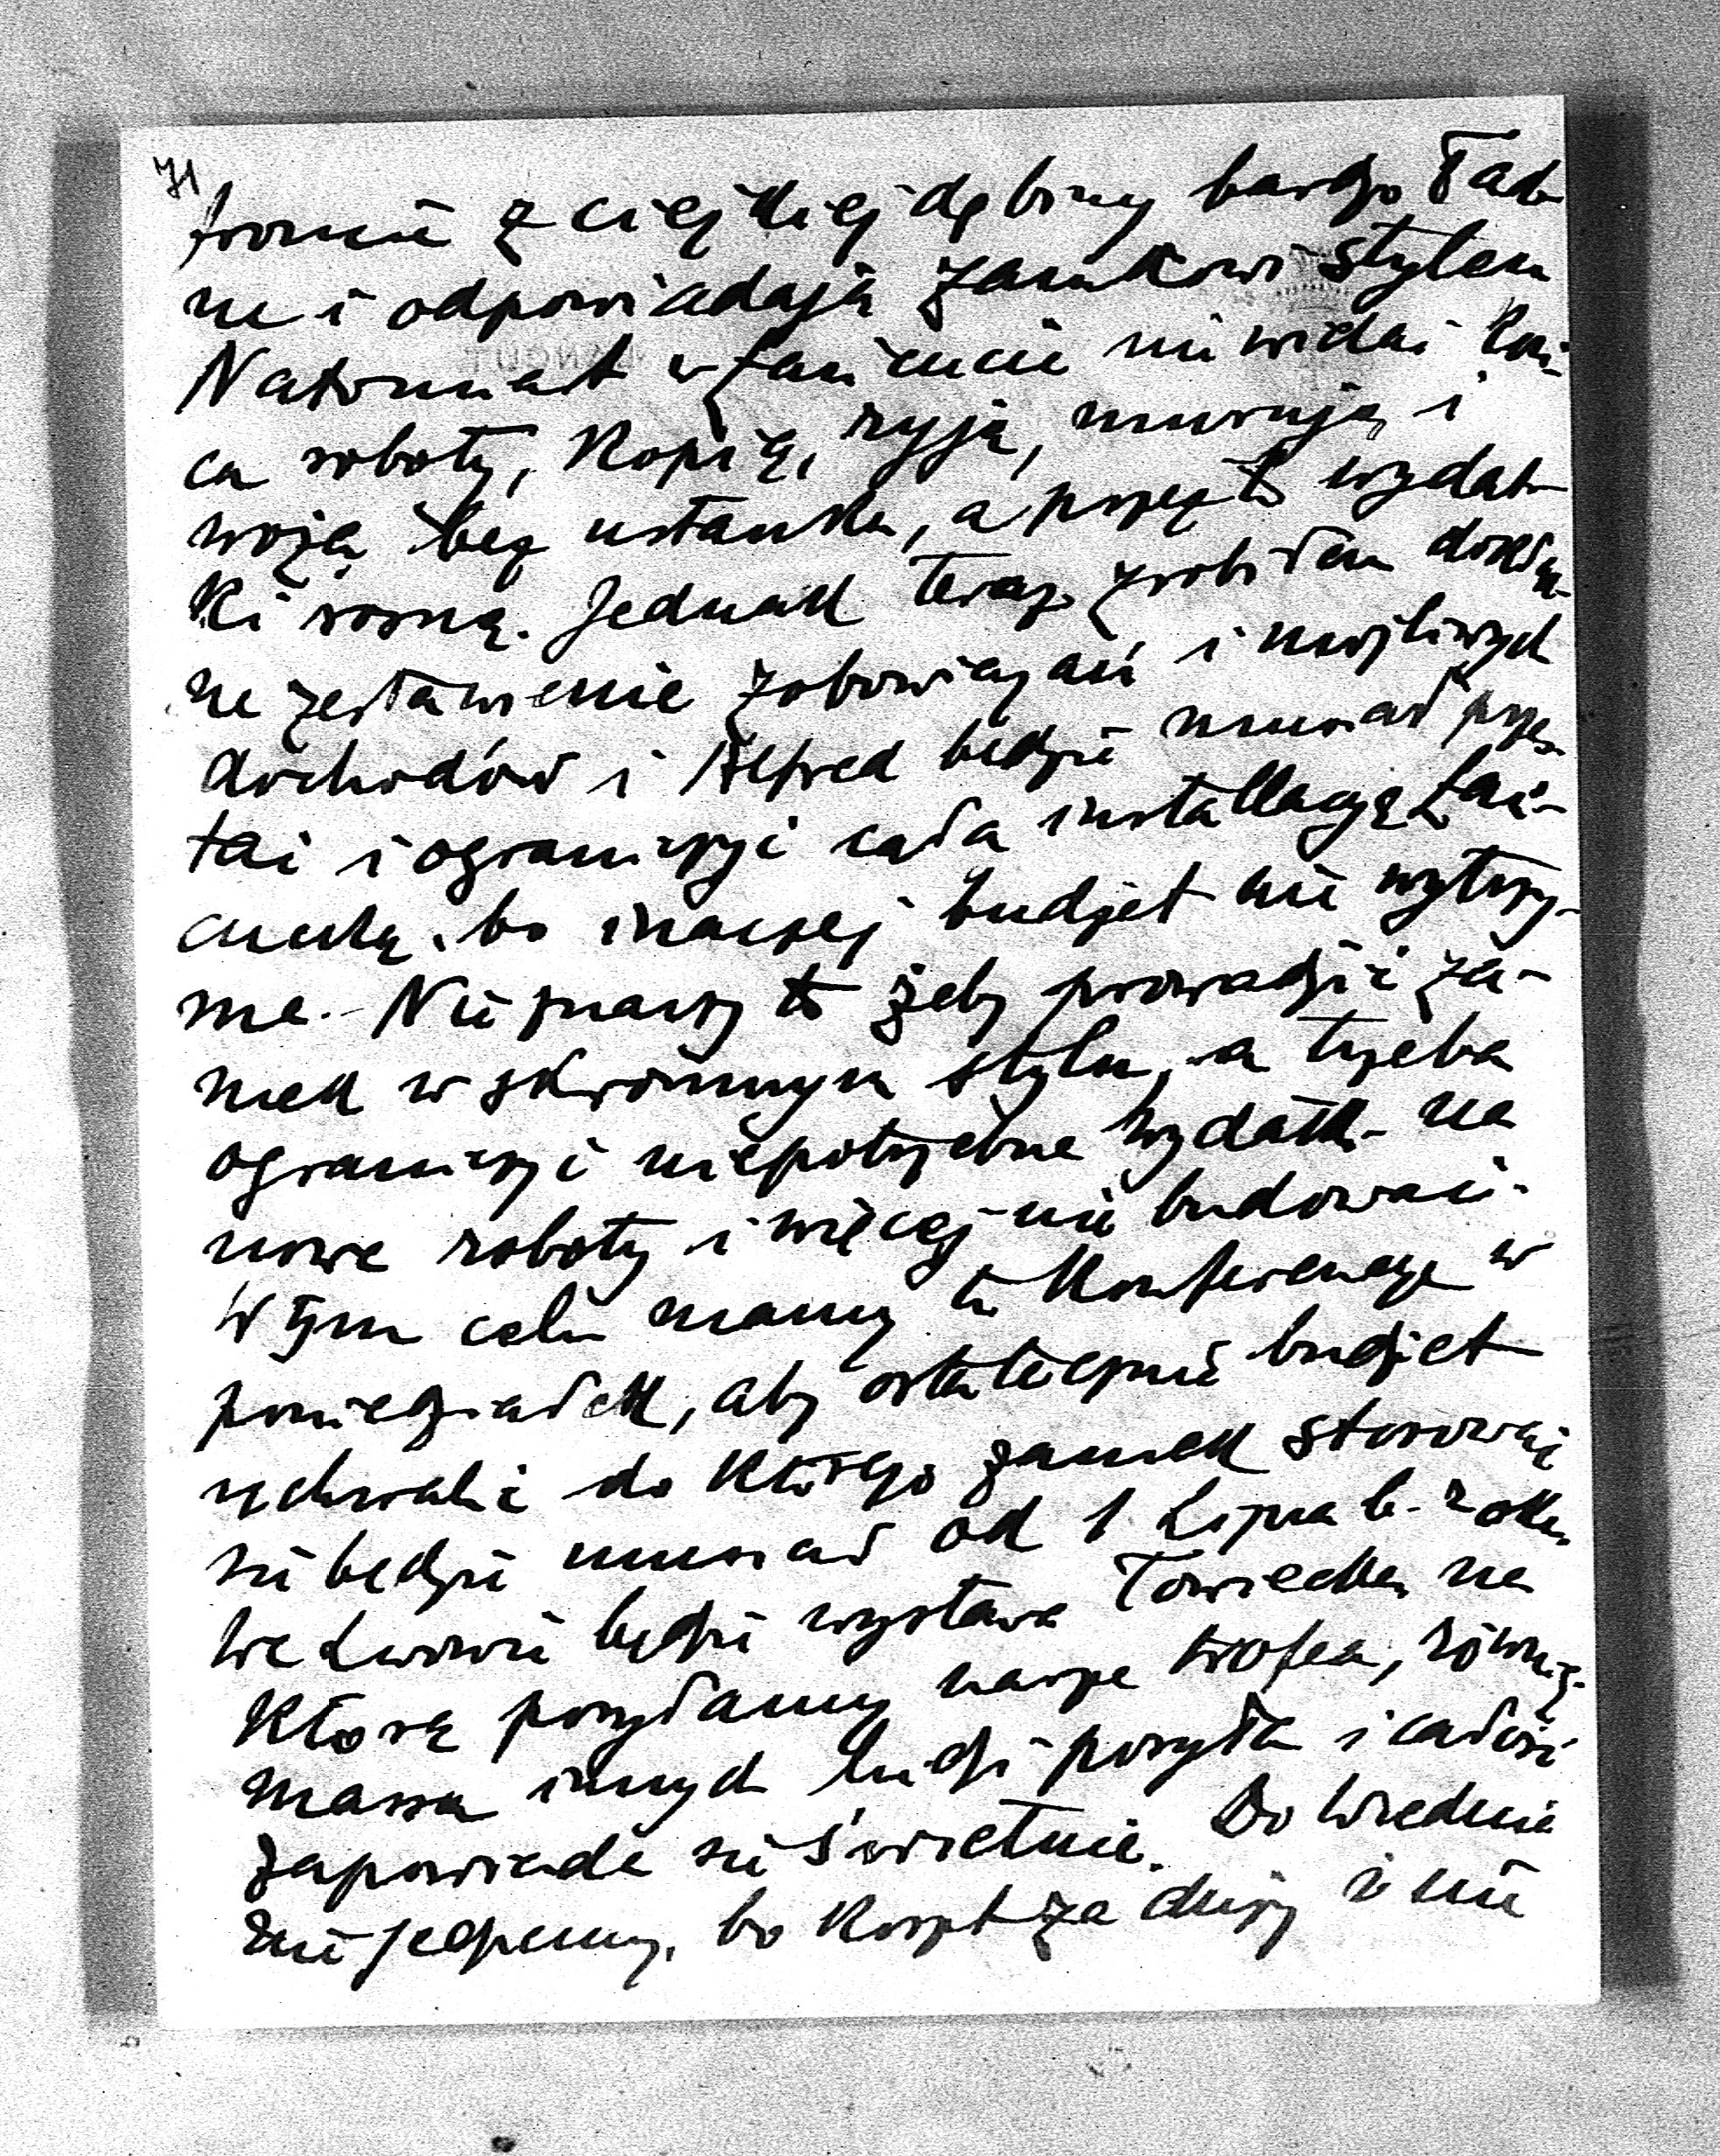 71
tronie z ciężkiej dębiny bardzo ład-
ne i odpowiadają zamkowi stylem
Natomiast w Łańcucie nie widać koń-
ca roboty, kopią, ryją, murują i
wożą bez ustanku, a przez to wydat-
ki rosną. Jednak teraz zrobiłem dokład-
ne zestawienie zobowiązań i możliwych
dochodów i Alfred będzie musiał przes-
tać i ograniczyć całą installację Łań-
cucką, bo inaczej budżet nie wytrzy-
ma. Nie znaczy to żeby prowadzić za-
mek w skromnym stylu, a trzeba
ograniczyć niepotrzebne wydatki na
nowe roboty i więcej nie budować.
W tym celu mamy tu konferencję w
poniedziałek, aby ostatecznie budżet
uchwalić do którego zamek stosować
się będzie musiał od 1 Lipca b. roku
We Lwowie będzie wystawa łowiecka na
którą posyłamy nasze trofea, równię.
massa innych ludzi posyła i całość
zapowiada się świetnie. Do Wiednia
nie jedziemy, bo koszt za duży i nie